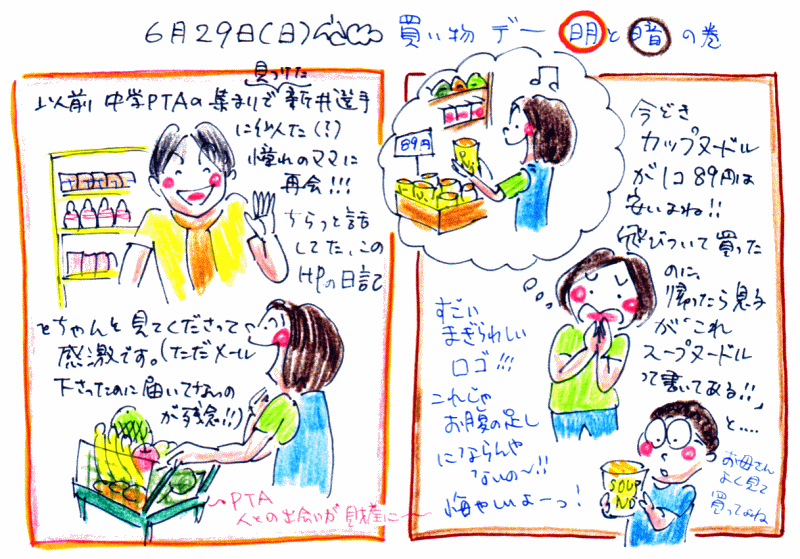 6月29日(日) 買い物デー 明と暗の巻
見つけた
以前 中学PTAの集まりで新井選手
に似た(?)
憧れのママに
再会!!!
ちらっと話
してた、この
HPの日記
をちゃんと見てくださって
感激です。(ただメール
下さったのに届いてないの
が残念!!)
PTA
人との出会いが財産に〜
89円
今どき
カップヌードル
が1コ89円は
安いよね!!
飛びついて買った
のに、
帰ったら息子
が「これ
スープヌードル
って書いてある!!」
と.....
すごい
まぎらわしい
ロゴ!!!
これじゃ
お腹の足し
にならんや
ないの〜!!
悔やしいよーっ!
SOUP
ND
お母さん
よく見て
買ってよね